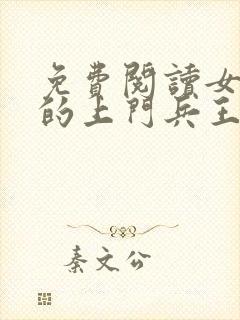 免費閱讀女
的上門兵王
秦文公